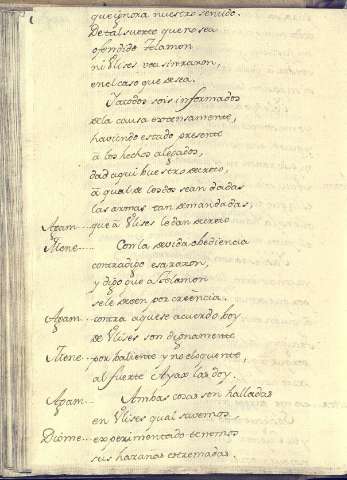 que ignora nuestro sentido.
De tal suerte que no sea
ofendido Telamon
ni Vlises vea sinrazon,
en el caso que desea.
Ya todos sois informados
de la causa estensamente,
haviendo estado presente
à los hechos alegados,
dad aqui buestro decreto,
à qual de los dos sean dadas
las armas tan demandadas,
Agam... que à Vlises le dan decreto
Mene..... Con la devida obediencia
contradigo esa razon,
y digo que à Telamon
se le deven por creencia.
Agam... contra aquese acuerdo hoy
de Vlises son dignamente
Mene... por baliente y no eloquente,
al fuerte Ayax las doy.
Agam... Ambas cosas son halladas
en Vlises qual savemos
Diome... experimentado tenemos
sus hazañas estremadas.